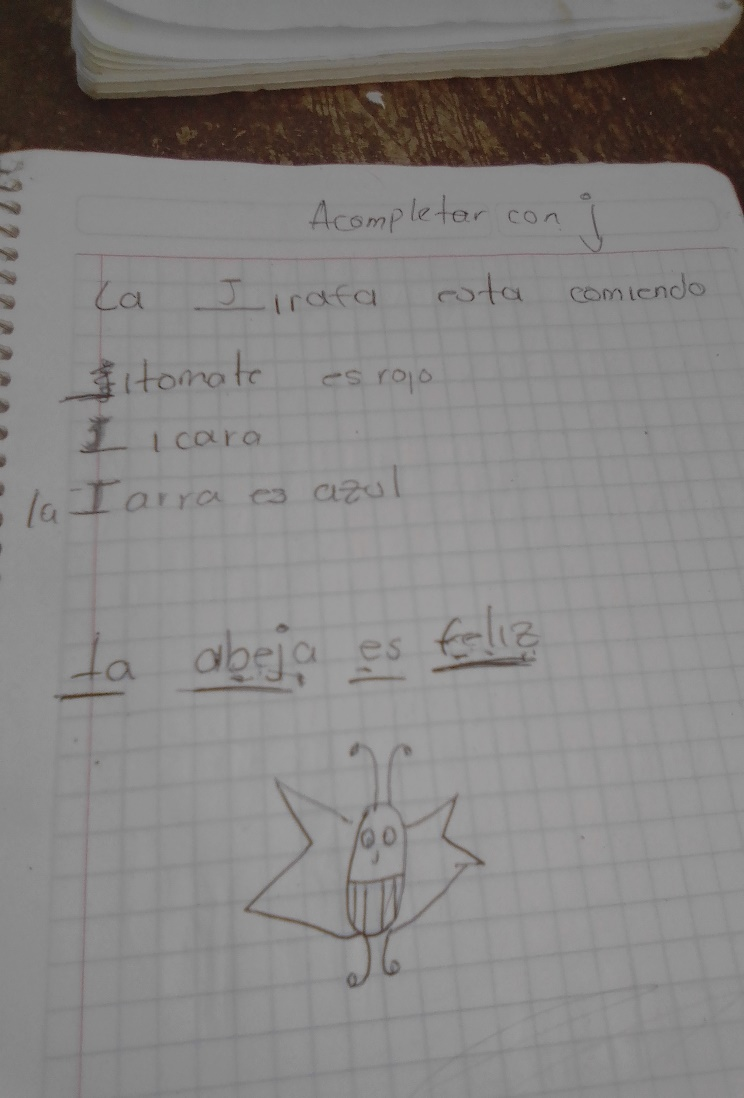 Acompletar con j
La Jirafa esta comiendo
Jitomate es rojo
Jicara
la Jarra es azul
la abeja es feliz